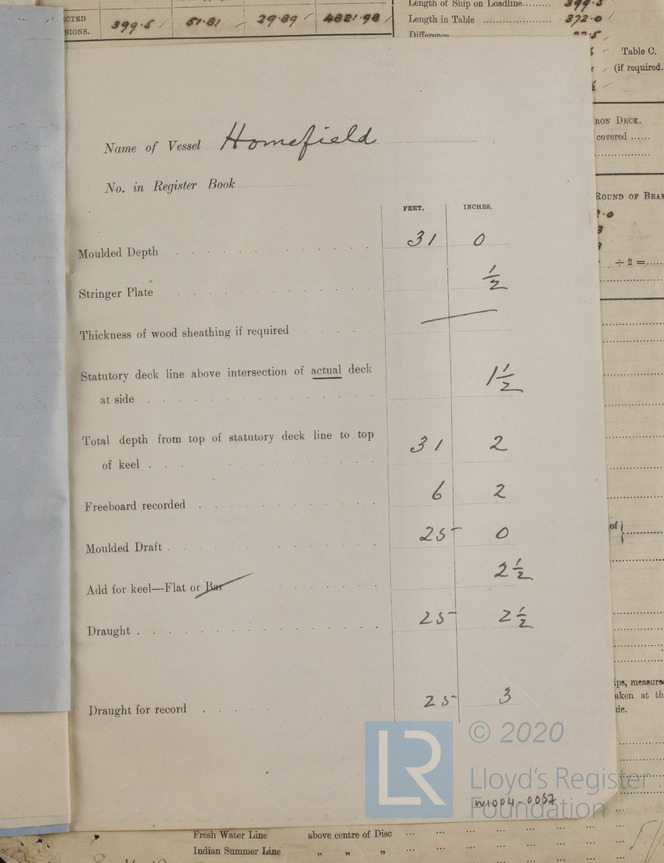 CTED
SIONS.
399.5 51.81 29.89 4821.98
Length of Ship on Loadline......... 399.5
Length in Table .................. 372.0
Difference
Table C.
(if required.
RON DECK.
covered ......
ROUND OF BEAM
÷ 2 =.....
Name of Vessel Homefield
No. in Register Book
FEET. INCHES.
Moulded Depth 31 0
Stringer Plate ½
Thickness of wood sheathing if required —
Statutory deck line above intersection of actual deck
at side 1½
Total depth from top of statutory deck line to top
of keel 31 2
Freeboard recorded 6 2
Moulded Draft 25 0
Add for keel—Flat or Bar 2½
Draught 25 2½
Draught for record 25 3
of
ips, measure
aken at th
de.
LR
© 2020
Lloyd's Register
Foundation
W1004-0057
Fresh Water Line above centre of Disc
Indian Summer Line " " "